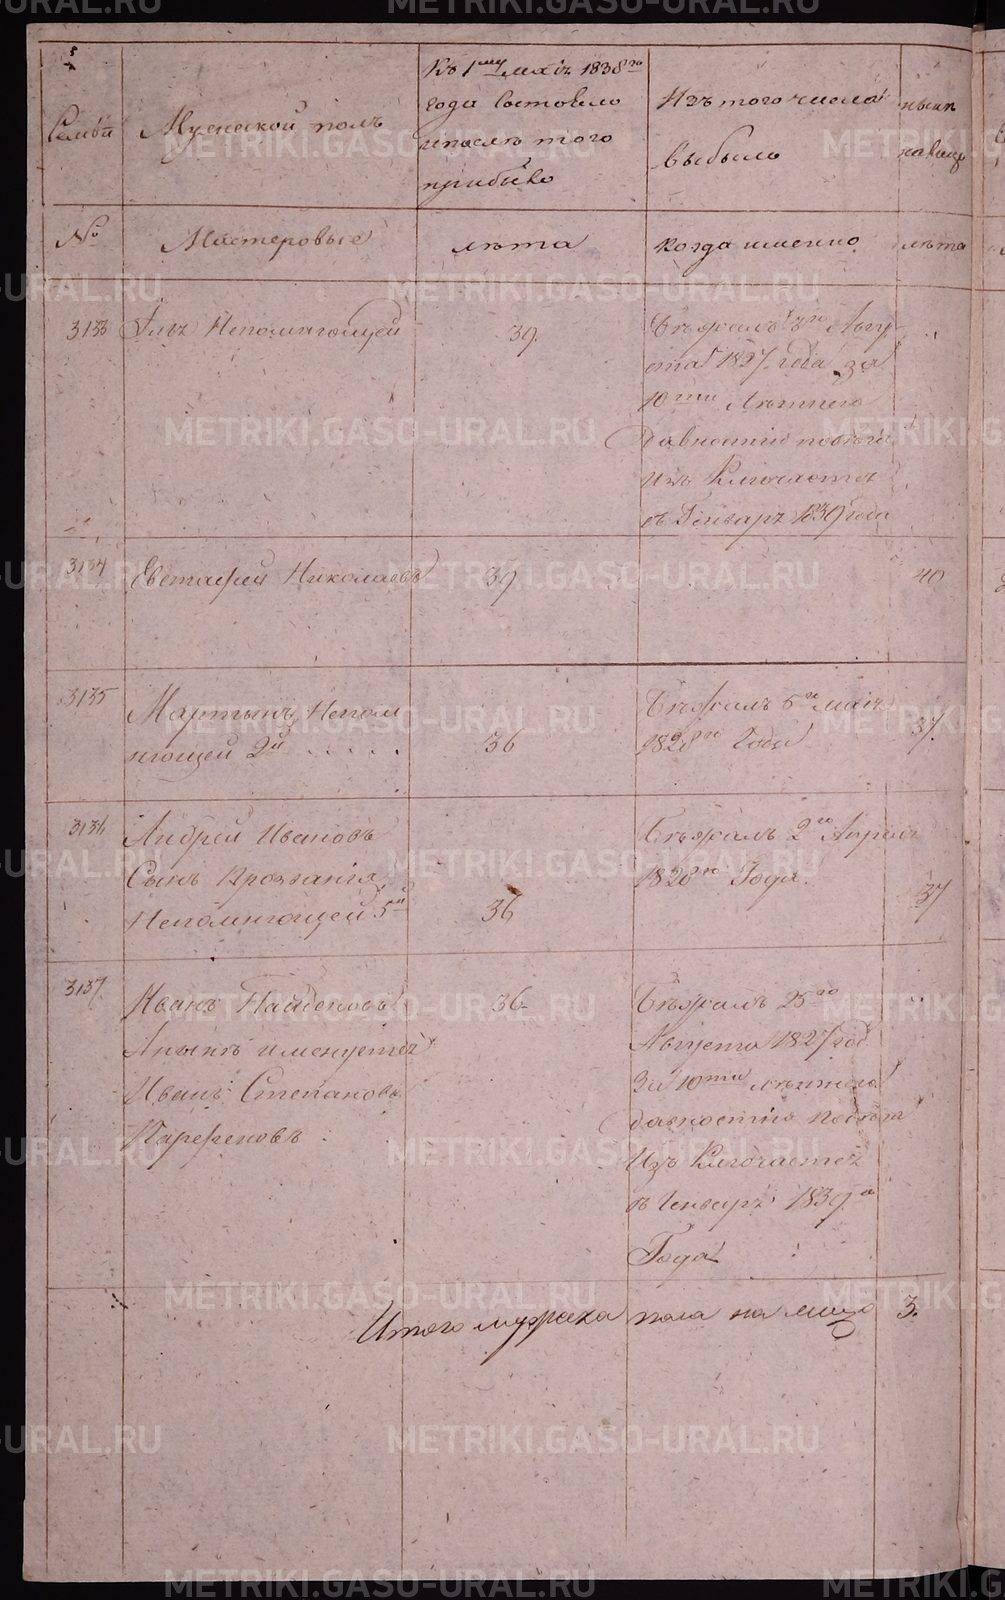 Семьи
Мужеской полъ
Къ 1му маiя 1838го
года состояло
и после того
прибыло
Изъ того числа
выбыло
ныне
налицо
№
Мастеровые
лѣта
когда именно
лѣта
3133 Непомнющей 39.
Бѣжалъ Авгу
ста 1827 года за
10ти Лѣтнею
давностiю побега
изъ Ключается
въ Генваре 1839 года
3134 Евстафей Николаевъ 39 40
3135 Мартынъ Непом
нющей 2й 36
Бѣжалъ 5го маiя
1828го Года 37.
3136 Андрей Ивановъ
Сынъ Прозванiя
Непомнющей 5й 36
Бѣжалъ 2го Апреля
1828го Года. 37
3137 Иванъ Найденовъ 36
А ныне именуется
Иванъ Степановъ
Парфеновъ
Бѣжалъ 25го
Августа 1827 год
За 10ти лѣтнею
давностiю побега
Изъ Ключается
въ Генваре 1839.
Года
Итого мужеска пола на лицо 3.
METRIKI.GASO-URAL.RU